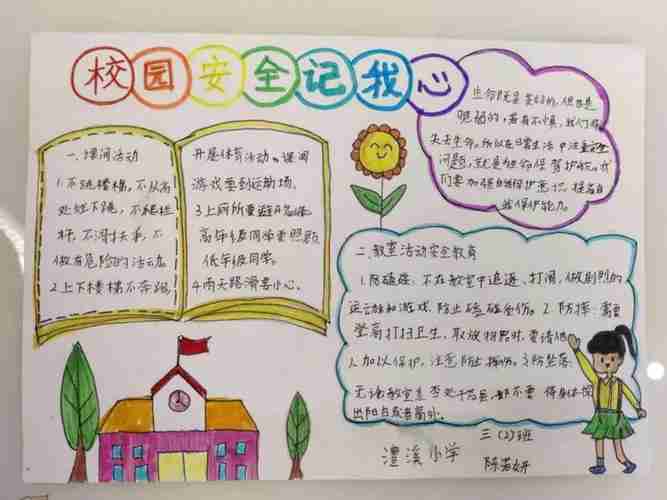 校园安全记我心
一、课间活动
1.不跳楼梯，不从高
处往下跳，不爬栏
杆，不滑扶手，不
做有危险的活动
2.上下楼梯不奔跑
开展体育活动、课间
游戏要到运动场。
3.上厕所要避开高峰
高年级同学要照顾
低年级同学。
4.雨天路滑要小心。
生命既是美好的，但也是
脆弱的，若有不慎，我们将
失去生命，所以在日常生活中注重安全
问题，就是为生命保驾护航。我
们要加强自我保护意识，提高自
我保护能力。
二、教室活动安全教育
1.防磕碰：不在教室中追逐、打闹，做剧烈的
运动和游戏，防止磕碰受伤。2.防摔：需要
登高打扫卫生，取放物品时，要请他
人加以保护，注意防止摔伤。3.防坠落：
无论教室是否处于高层，都不要将身体探
出阳台或者窗外。
三（2）班
澧溪小学
陈若妍